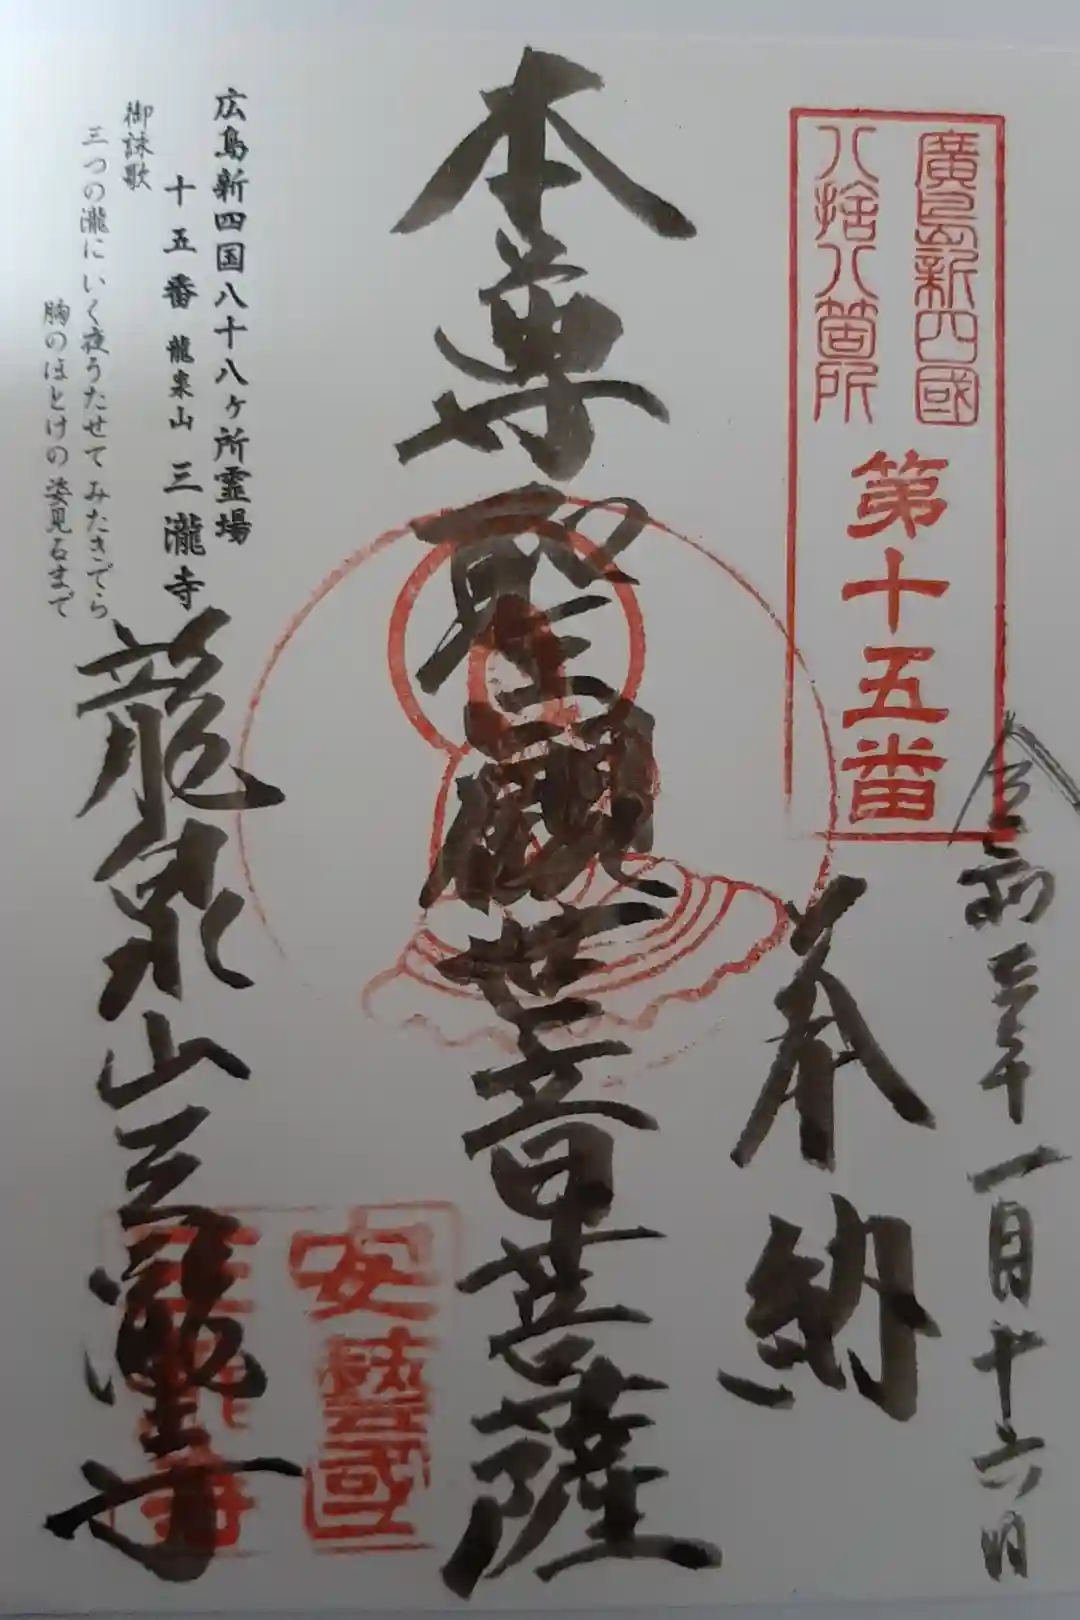 廣島新四國
八拾八箇所
第十五番
奉納
一月十六日
本尊聖観世音菩薩
安藝國
龍泉山三瀧寺
広島新四国八十八ヶ所霊場
十五番 龍泉山 三瀧寺
御詠歌
三つの瀧にいく夜うたせて みたきでら
胸のほとけの姿見るまで